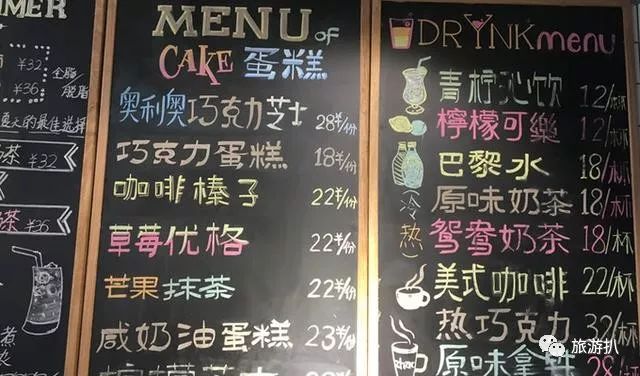 MMER
¥32
全脂
¥36
脱脂
夏天的最佳选择
茶 ¥32
茶 ¥35
MENU of
CAKE 蛋糕
奥利奥巧克力芝士 28¥/份
巧克力蛋糕 18¥/份
咖啡榛子 22¥/份
草莓优格 22¥/份
芒果抹茶 22¥/份
咸奶油蛋糕 23¥/份
DRYNK menu
青柠沁饮 12/杯
檸檬可樂 12/杯
巴黎水 18/杯
冷 原味奶茶 18/杯
热 鸳鸯奶茶 18/杯
美式咖啡 22/杯
热巧克力 32/杯
原味拿铁 28/杯
旅游扒